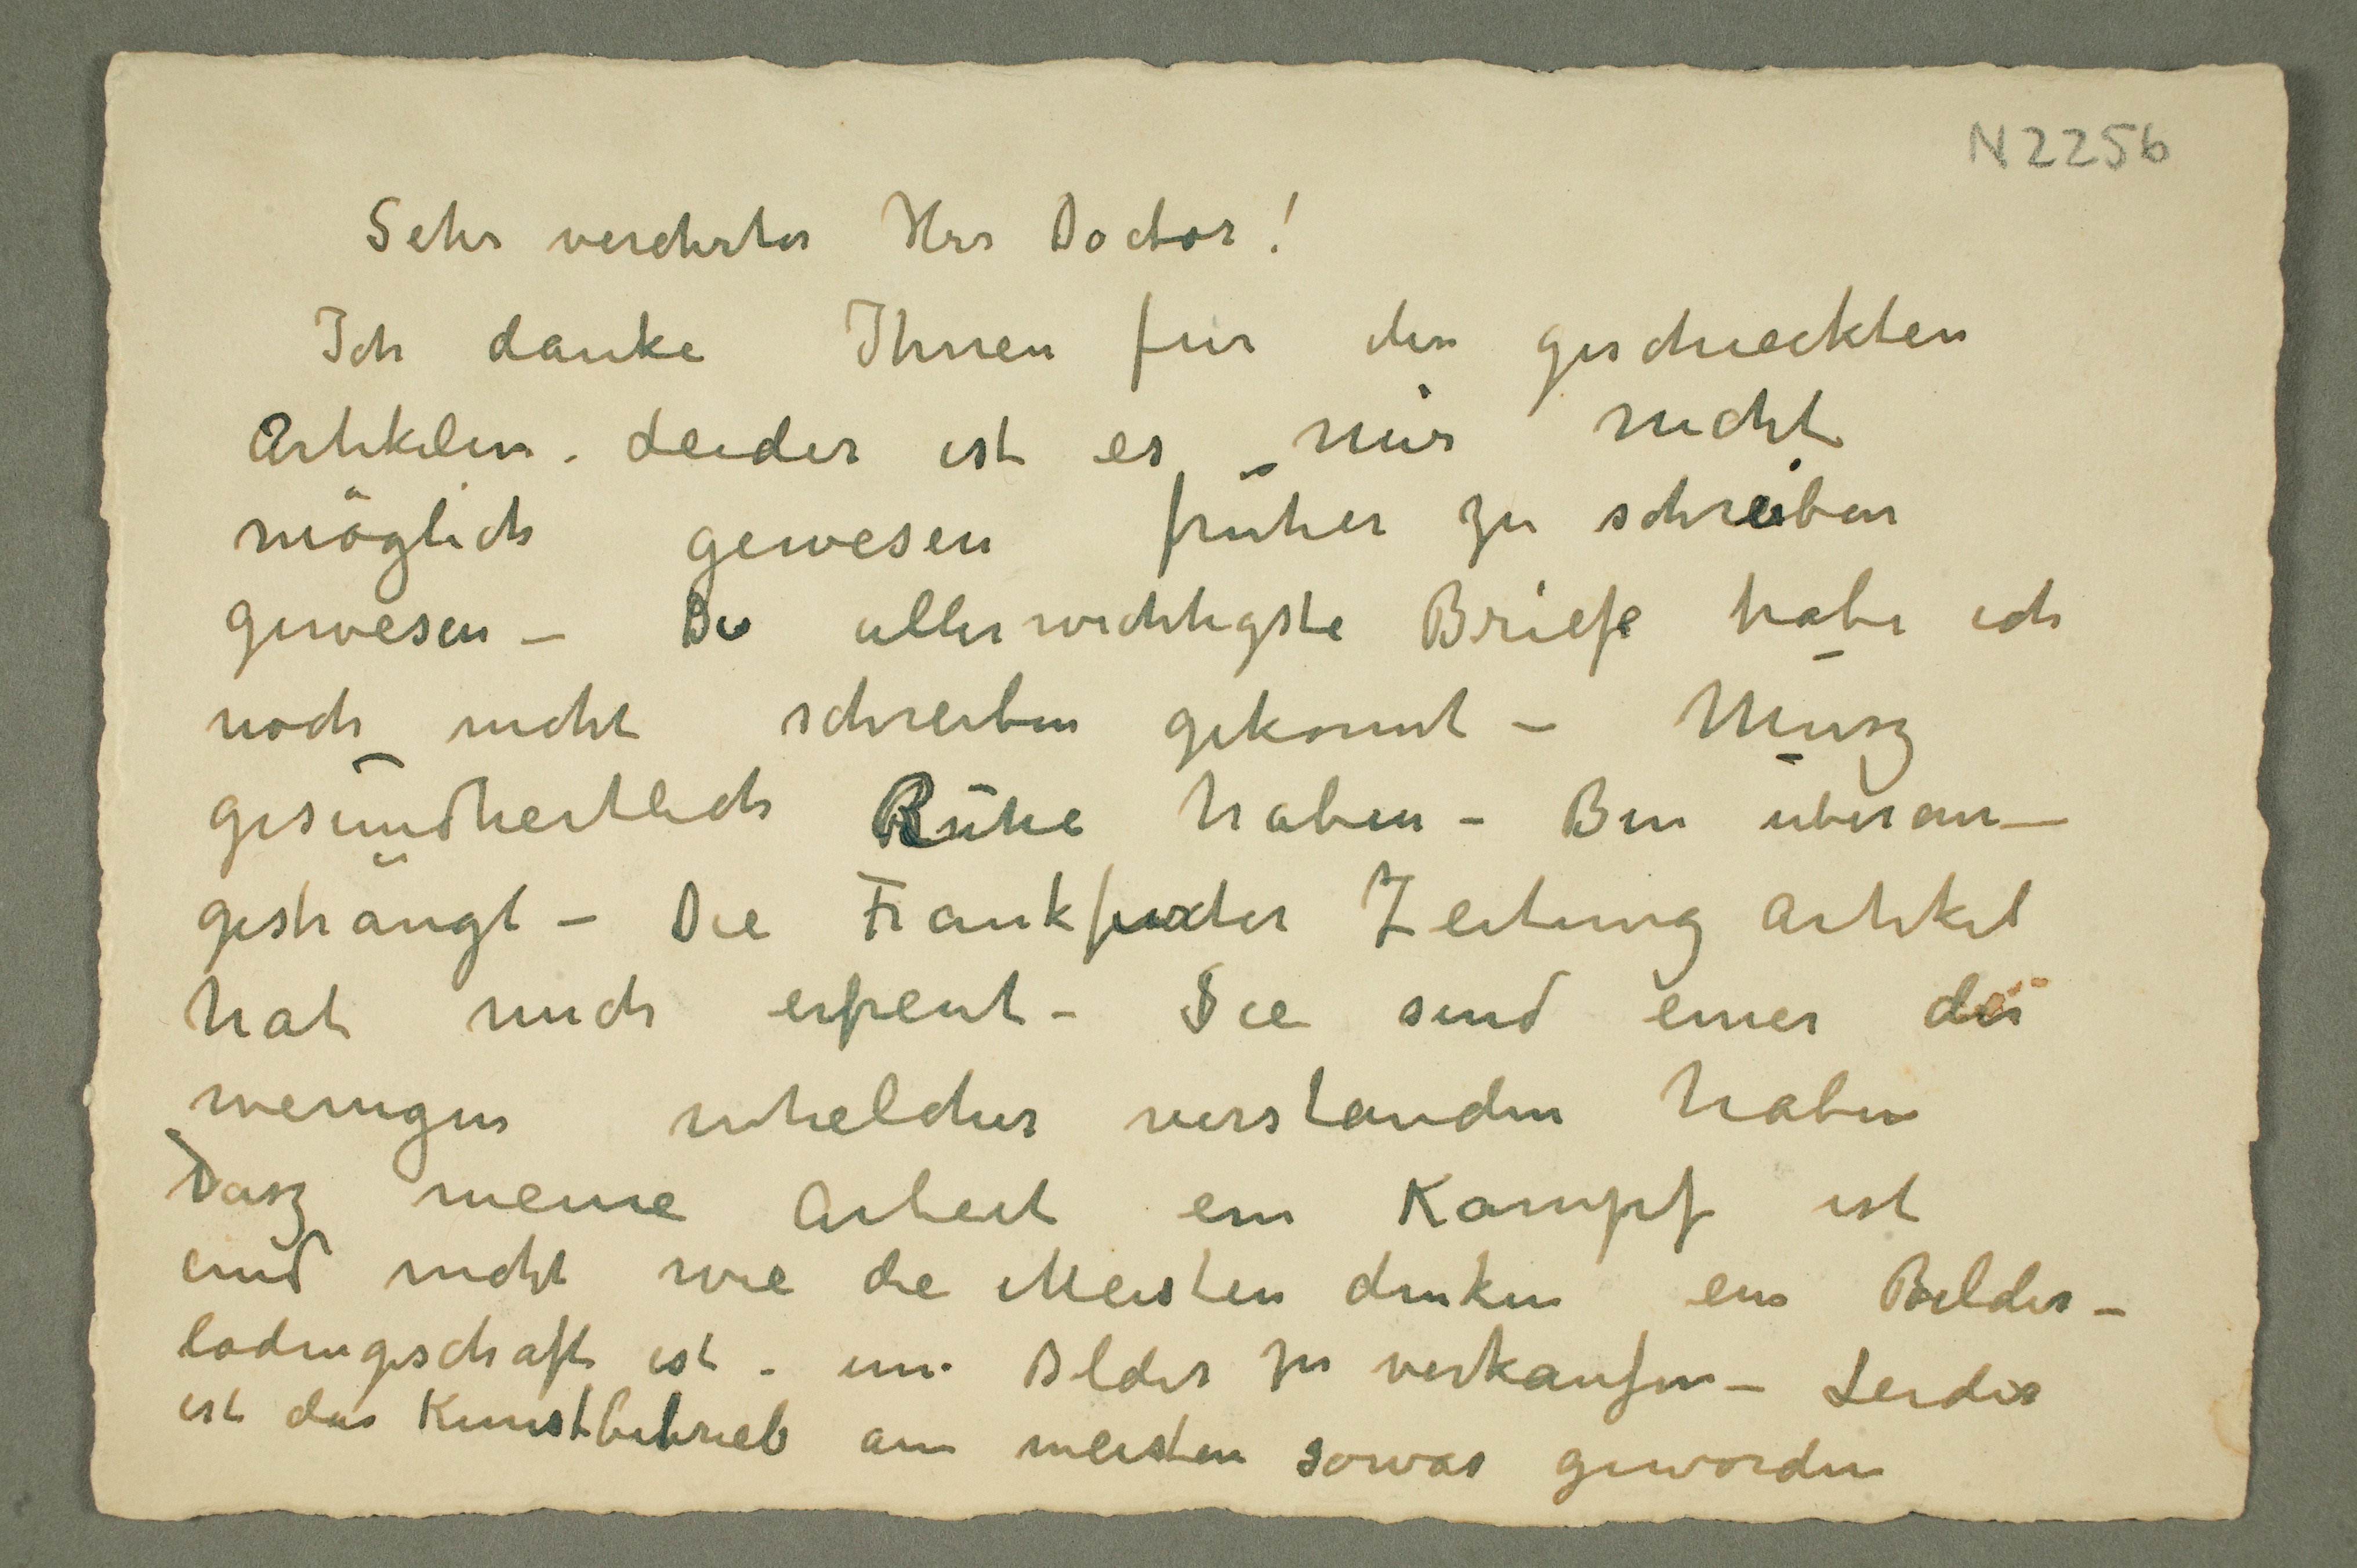 N 2256
Sehr verehrter Herr Doctor!
Ich danke Ihnen für den geschieckten
Artikelen. Leider ist es mir nicht
möglich gewesen früher zu schreiben
gewesen – Die allerwichtigste Briefe habe ich
noch nicht schreiben gekonnt – Musz
gesundheitlich Ruhe haben – Bin überan–
gesträngt – Die Frankfurter Zeitung Artikel
hat mich erfreut – Sie sind einer der
wenigen whelcher verstanden haben
Dasz meine Arbeit ein Kampf ist
und nicht wie die Meisten denken ein Bilder–
ladengeschaft ist – um Bilder zu verkaufen – Leider
ist das Kunstbetrieb am meisten sowas geworden